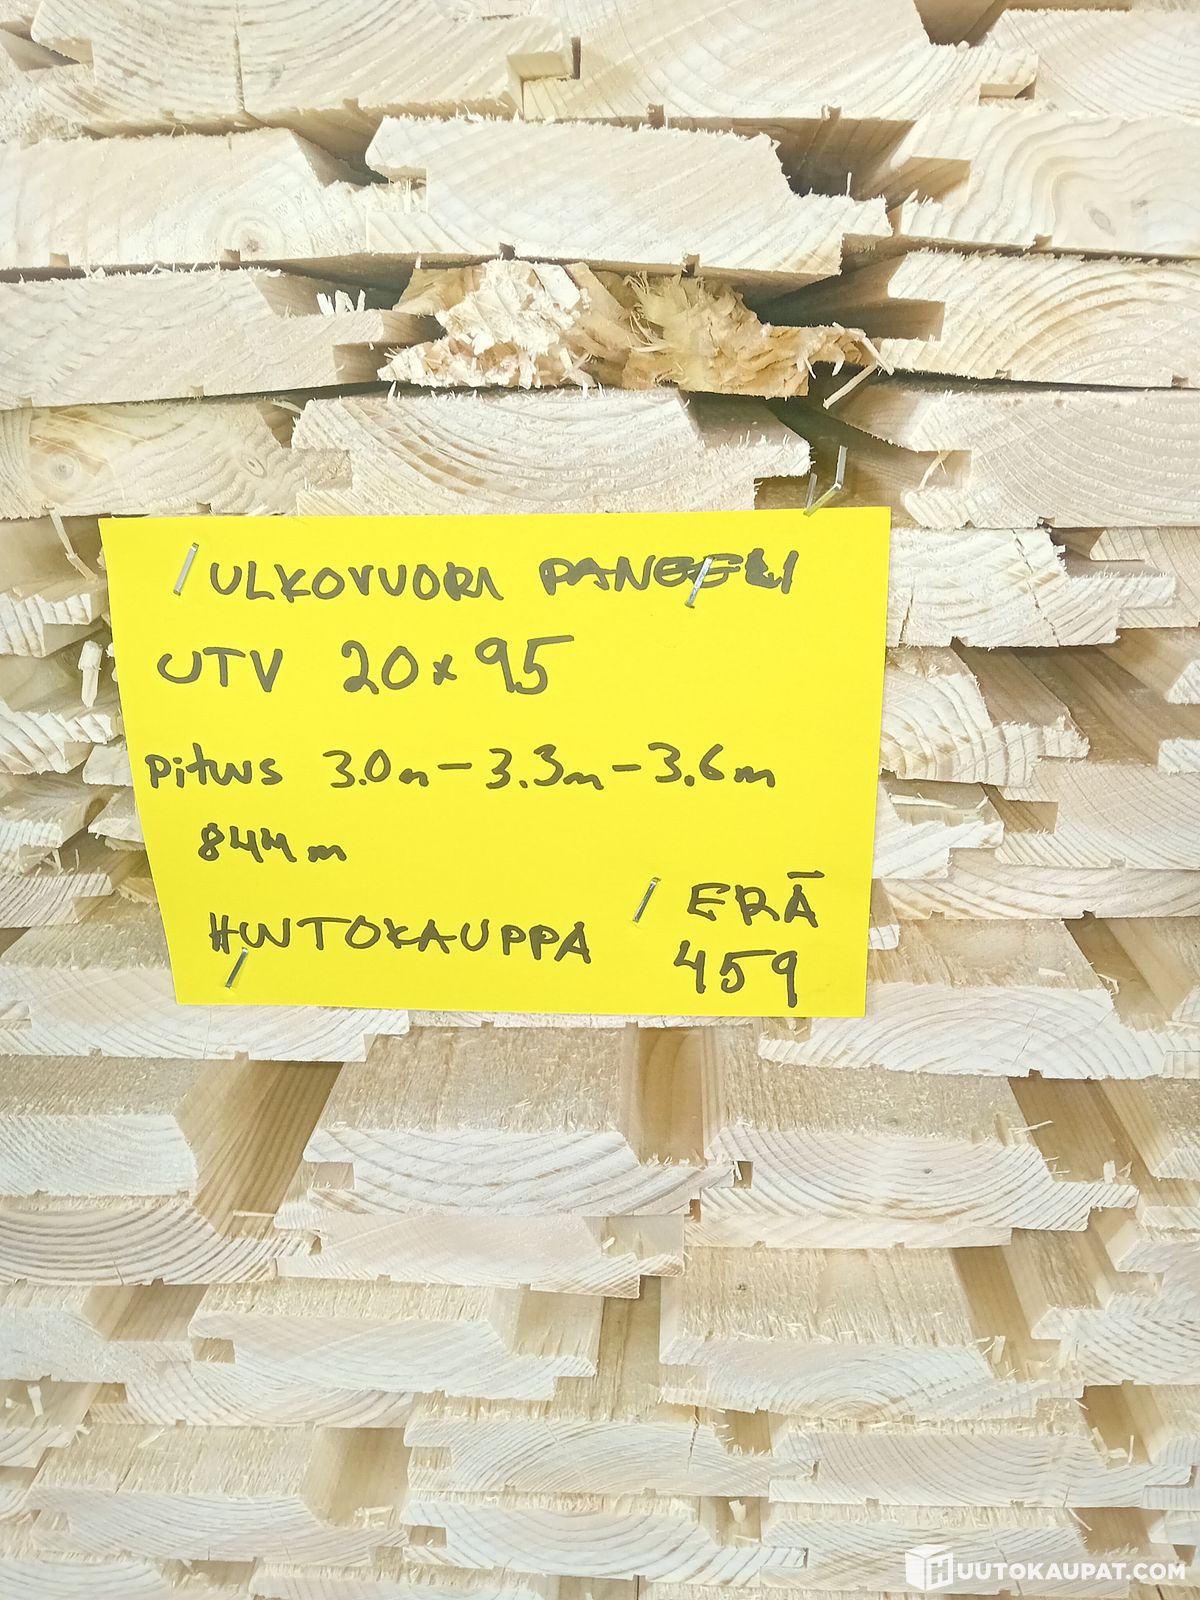 ULKOVUORI PANEELI
UTV 20x95
Pituus 3.0m-3.3m-3.6m
844m
HUUTOKAUPPA
ERÄ
459
HUUTOKAUPAT.COM